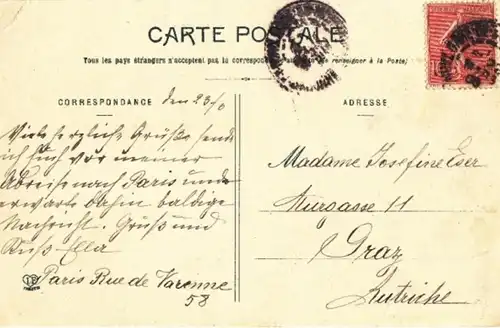 CARTE POSTALE
Tous les pays étrangers n'acceptent pas la correspondance renseigner à la Poste)
CORRESPONDANCE den 23/
ADRESSE
Viele herzliche Grüße sende
ich Euch vor meiner
Abreise nach Paris und
erwarte dahin baldige
Nachricht. Gruß und
Kuß Ella
Paris Rue de Varenne
58
Madame Josefine Eser
Murgasse 11
Graz
Autriche